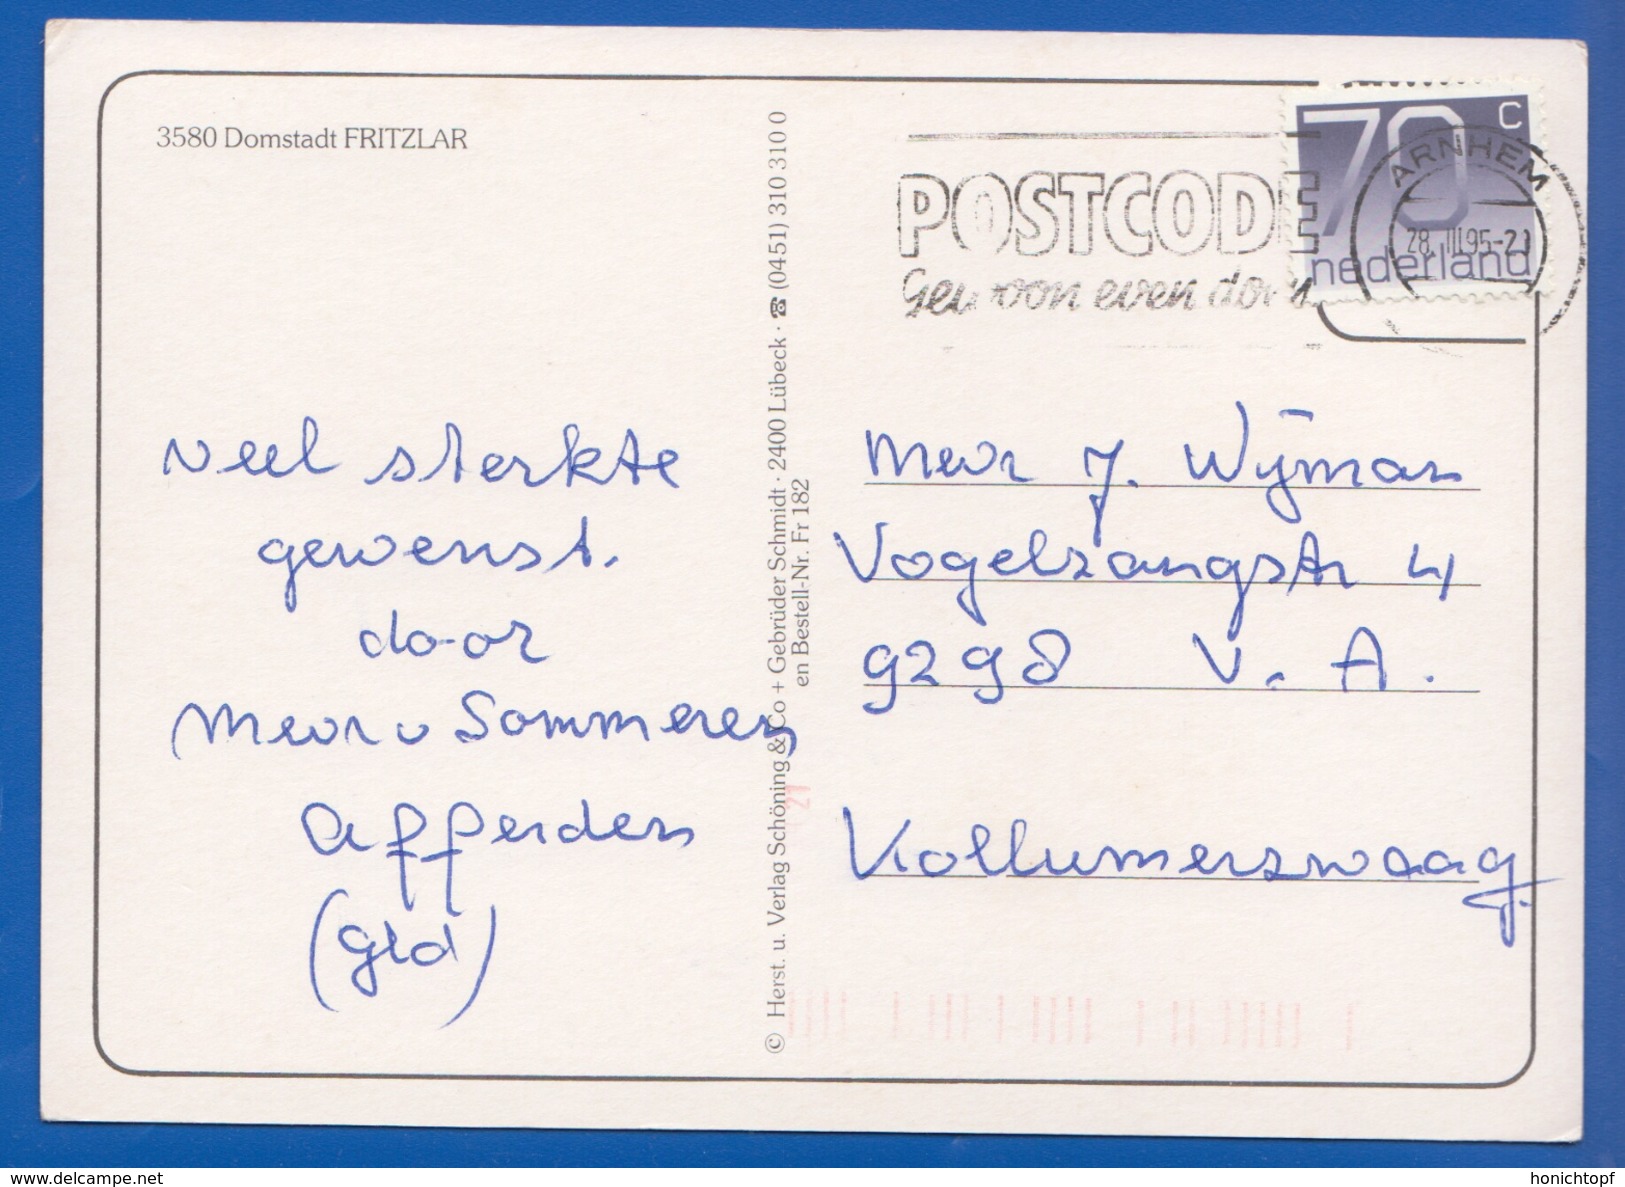 3580 Domstadt FRITZLAR
veel sterkte
gewenst.
door
Mevr v Sommeren
Afferden
(Gld)
© Herst. u. Verlag Schöning & Co + Gebrüder Schmidt · 2400 Lübeck · ☎ (0451) 310 310 0
en Bestell-Nr. Fr 182
21
POSTCODE
Gewoon even doen
70 c
nederland
ARNHEM
28. III.95-21
Mevr J. Wijman
Vogelzangstr 4
9298 V. A.
Kollumerzwaag
delcampe.net
honichtopf